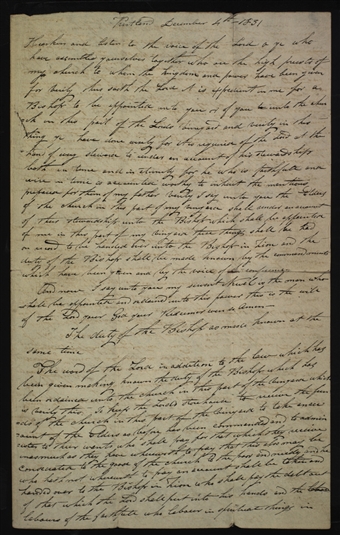 Kirtland December 4th 1831
Hearken and listen to the voice of the Lord O ye who
have assembled yourselves together who are the high priests of
my church to whom the kingdom and power have been given
for verily thus saith the Lord it is expedient in me for a
Bishop to be appointed unto you or of you unto the chur
ch in this part of the Lords vineyard and verily in this
thing ye have done wisely for it is required of the Lord at the
hand of every steward to render an account of his stewardship
both in time and in eternity for he who is faithful and
wise in time is accounted worthy to inherit the mansions
prepared for them of my father verily I say unto you the elders
of the church in this part of my vineyard shall render an account
of their stewardship unto the Bishop which shall be appointed
of me in this part of my vineyard these things shall be had
on record to be handed over unto the Bishop in Zion and the
duty of the Bishop shall be made known by the commandments
which have been given and by the voice of the conference
And now I say unto you my servant is the man who
shall be appointed and ordained unto this power this is the will
of the Lord your God your Redeemer even so amen
The duty of the Bishop as made known at the
same time
The word of the Lord in addition to the law which has
been given making known the duty of the Bishop which has
been ordained unto the church in this part of the vineyard which
is verily this to keep the Lords store house to receive the fun
ds of the church in this part of the vineyard to take an ac
count of the Elders as before has been commanded and to admin
ister to their wants who shall pay for that which they receive
inasmuch as they have wherewith to pay that this also may be
consecrated to the good of the church to the poor and needy and he
who hath not wherewith to pay an account shall be taken and
handed over to the Bishop in Zion who shall pay the debt out
of that which the Lord shall put into his hands and the
labours of the faithful who labour in spiritual things in